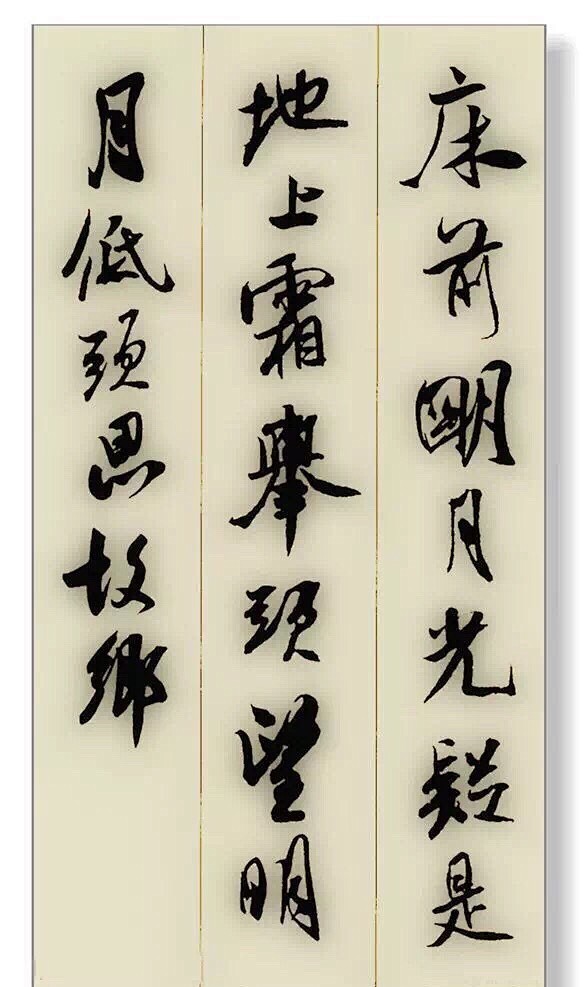 床前明月光疑是
地上霜舉頭望明
月低頭思故鄉